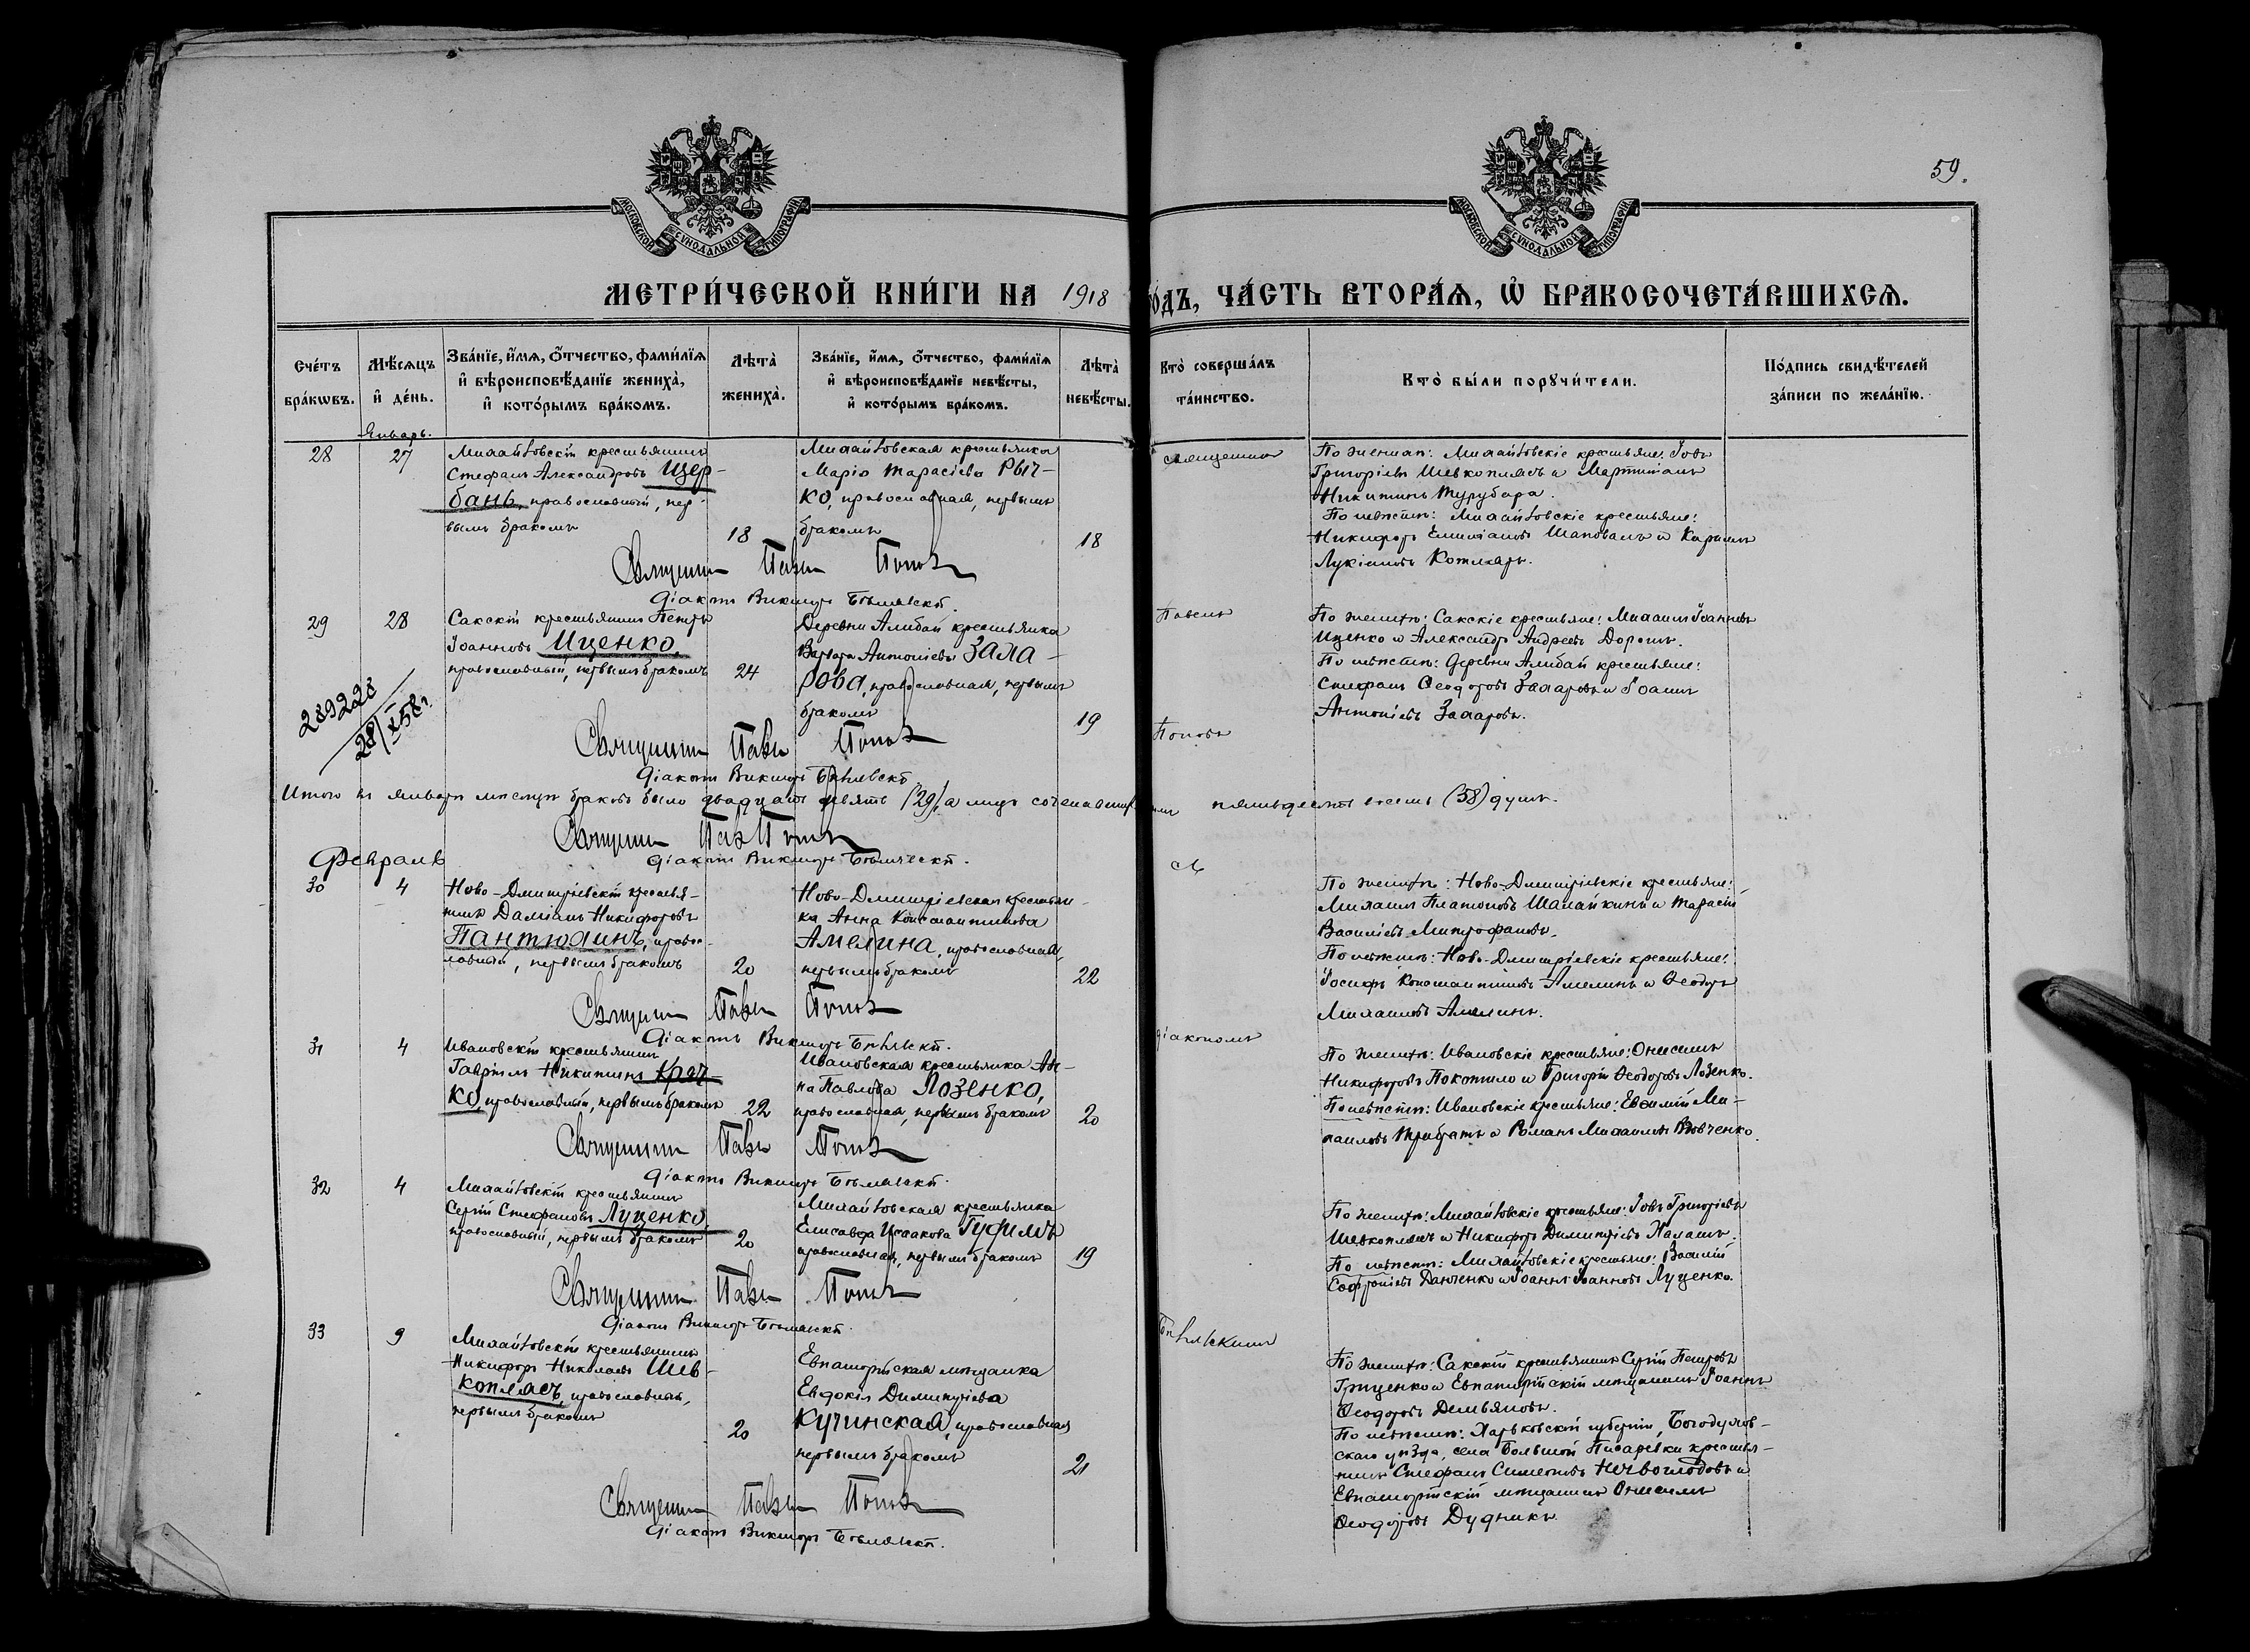 59.
МОСКОВСКОЙ СѴНОДАЛЬНОЙ ТИПОГРАФІИ
МОСКОВСКОЙ СѴНОДАЛЬНОЙ ТИПОГРАФІИ
МЕТРИ́ЧЕСКОЙ КНИ́ГИ НА 1918
О́ДЪ, ЧА́СТЬ ВТОРА́Ѧ, Ѡ҆ БРАКОСОЧЕТА́ВШИХСѦ.
Сче́тъ бра́кѡвъ.
Мѣ́сѧцъ и҆ де́нь.
Зва́нїе, и҆́мѧ, ѻ҆́тчество, фами́лїѧ
и҆ вѣроисповѣ́данїе жениха̀,
и҆ кото́рымъ бра́комъ.
Лѣта̀ жениха̀.
Зва́нїе, и҆́мѧ, ѻ҆́тчество, фами́лїѧ
и҆ вѣроисповѣ́данїе невѣ́сты,
и҆ кото́рымъ бра́комъ.
Лѣта̀ невѣ́сты.
Кто̀ соверша́лъ та́инство.
Кто̀ бы́ли порꙋчи́тели.
По́дпись свидѣ́телей
за́писи по жела́нїю.
Январь.
28
27
Михайловскій крестьянинъ
Стефанъ Александровъ Щер-
бань, православный, пер-
вымъ бракомъ
18
Михайловская крестьянка
Марія Тарасіева Рыч-
ко, православная, первымъ
бракомъ
18
священникъ
По женихѣ: Михайловскіе крестьяне: Іовъ
Григоріевъ Шевкоплясъ и
Никитинъ Турубара.
По невѣстѣ: Михайловскіе крестьяне:
Никифоръ Емиліановъ Шаповалъ и
Лукіановъ Котляръ.
Священникъ Павелъ Поповъ
Діаконъ Викторъ Бѣлявскій.
29
28
Сакскій крестьянинъ Петръ
Іоанновъ Иценко,
православный, первымъ бракомъ
24
Деревни Алибай крестьянка
Варвара Антоніева Заха-
рова, православная, первымъ
бракомъ
19
Павелъ
Поповъ
По женихѣ: Сакскіе крестьяне: Михаилъ Іоанновъ
Иценко и Александръ Андреевъ
По невѣстѣ: Деревни Алибай крестьяне:
Стефанъ Ѳеодоровъ Захаровъ и Іоаннъ
Антоніевъ Захаровъ.
289228
28/X 58 г.
Священникъ Павелъ Поповъ
Діаконъ Викторъ Бѣлявскій
Итого въ январѣ мѣсяцѣ браковъ было двадцать девять (29), а лицъ пятьдесятъ восемь (58) душъ.
Священникъ Павелъ Поповъ
Діаконъ Викторъ Бѣлявскій.
Февраль
съ
30
4
Ново-Дмитріевскій крестья-
нинъ Даміанъ Никифоровъ
Пантюхинъ, правос-
лавный, первымъ бракомъ
20
Ново-Дмитріевская крестьян-
ка Анна Константинова
Амелина, православная,
первымъ бракомъ
22
По женихѣ: Ново-Дмитріевскіе крестьяне:
Михаилъ Платоновъ Шалайкинъ и Тарасій
Василіевъ Митрофановъ.
По невѣстѣ: Ново-Дмитріевскіе крестьяне:
Іосифъ Константиновъ Амелинъ и Ѳеодоръ
Михаиловъ Амелинъ.
Священникъ Павелъ Поповъ
Діаконъ Викторъ Бѣлявскій.
31
4
Ивановскій крестьянинъ
Гавріилъ Никитинъ Крач-
ко, православный, первымъ бракомъ
22
Ивановская крестьянка Ан-
на Павлова Лозенко,
православная, первымъ бракомъ
20
діакономъ
По женихѣ: Ивановскіе крестьяне: Онисимъ
Никифоровъ Покотило и Григорій Ѳеодоровъ Лозенко.
По невѣстѣ: Ивановскіе крестьяне: Евѳимій Ми-
хаиловъ и Романъ Михаиловъ Вовченко.
Священникъ Павелъ Поповъ
Діаконъ Викторъ Бѣлявскій.
32
4
Михайловскій крестьянинъ
Сергій Стефановъ Луценко,
православный, первымъ бракомъ
20
Михайловская крестьянка
Елисавета Исаакова
православная, первымъ бракомъ
19
По женихѣ: Михайловскіе крестьяне: Іовъ Григоріевъ
Шевкоплясъ и Никифоръ Димитріевъ
По невѣстѣ: Михайловскіе крестьяне: Василій
Софроніевъ Данченко и Іоаннъ Іоанновъ Луценко.
Священникъ Павелъ Поповъ
Діаконъ Викторъ Бѣлявскій.
33
9
Михайловскій крестьянинъ
Никифоръ Николаевъ Шев-
коплясъ, православный,
первымъ бракомъ
20
Евпаторійская мѣщанка
Евдокія Димитріева
Кучинская, православная
первымъ бракомъ
21
Бѣлявскимъ
По женихѣ: Сакскій крестьянинъ Сергій Петровъ
Гриценко и Евпаторійскій мѣщанинъ Іоаннъ
Ѳеодоровъ Демьяновъ.
По невѣстѣ: Харьковской губерніи, Богодухов-
скаго уѣзда, села Большой Писаревки крестья-
нинъ Стефанъ Симеоновъ и
Евпаторійскій мѣщанинъ Онисимъ
Ѳеодоровъ Дудникъ.
Священникъ Павелъ Поповъ
Діаконъ Викторъ Бѣлявскій.